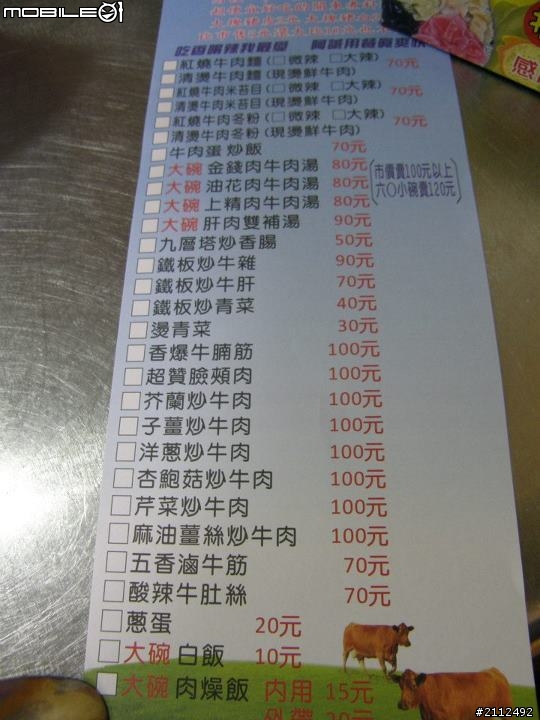 MOBILE01
吃香喝辣我最愛 阿誠用餐真爽快
紅燒牛肉麵(□微辣 □大辣) 70元
清燙牛肉麵(現燙鮮牛肉)
紅燒牛肉米苔目(□微辣 □大辣) 70元
清燙牛肉米苔目(現燙鮮牛肉)
紅燒牛肉冬粉(□微辣 □大辣) 70元
清燙牛肉冬粉(現燙鮮牛肉)
牛肉蛋炒飯 70元
大碗 金錢肉牛肉湯 80元
大碗 油花肉牛肉湯 80元
大碗 上精肉牛肉湯 80元
(市價賣100元以上
六〇小碗賣120元)
大碗 肝肉雙補湯 90元
九層塔炒香腸 50元
鐵板炒牛雜 90元
鐵板炒牛肝 70元
鐵板炒青菜 40元
燙青菜 30元
香爆牛腩筋 100元
超贊臉頰肉 100元
芥蘭炒牛肉 100元
子薑炒牛肉 100元
洋蔥炒牛肉 100元
杏鮑菇炒牛肉 100元
芹菜炒牛肉 100元
麻油薑絲炒牛肉 100元
五香滷牛筋 70元
酸辣牛肚絲 70元
蔥蛋 20元
大碗 白飯 10元
大碗 肉燥飯 內用 15元
外帶 20元
感
#2112492